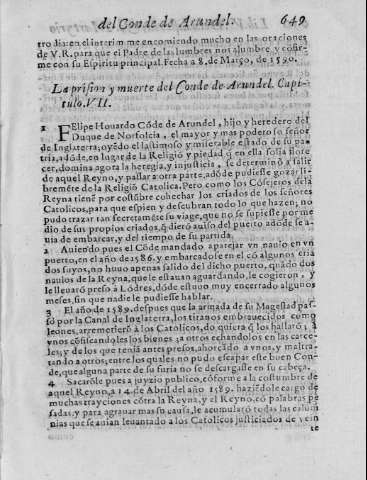 del Conde de Arundel. 649
tro dia: en el interim me encomiendo mucho en las oraciones
de V.R. para que el Padre de las lumbres nos alumbre, y cõfir-
me con su Espiritu principal. Fecha a 8. de Março, de 1590.
La prision y muerte del Conde de Arundel. Capi-
tulo. VII.
1 FElipe Houardo Cõde de Arundel, hijo y heredero del
Duque de Norfolcia, el mayor y mas poderoso señor
de Inglaterra, oyẽdo el lastimoso y miserable estado de su pa-
tria, adõde, en lugar de la Religiõ y piedad q̃ en ella solia flore
cer, domina agora la heregia, y injusticia, se determinõ a salir
de aquel Reyno, y passar a otra parte, adõde pudiesse gozar li-
bremẽte de la Religiõ Catolica. Pero como los Cõsejeros de la
Reyna tienẽ por costũbre cohechar los criados de los señores
Catolicos, para que espien y descubran todo lo que hazen; no
pudo trazar tan secretamẽte su viage, que no se supiesse por me
dio de sus propios criados, q̃ dierõ auiso del puerto adõde se a-
uia de embarcar, y del tiempo de su partida.
2 Auiendo pues el Cõde mandado aparejar vn nauio en vn
puerto, en el año de 1586. y embarcadose en el cõ algunos cria
dos suyos, no huuo apenas salido del dicho puerto, quãdo dos
nauios de la Reyna, que le estauan aguardando, le cogieron, y
le lleuarõ preso a Lõdres, dõde estuuo muy encerrado algunos
meses, sin que nadie le pudiesse hablar.
3 El año de 1589. despues que la armada de su Magestad pas-
sõ por la Canal de Inglaterra, los tiranos embrauecidos como
leones, arremetierõ a los Catolicos, do quiera q̃ los hallarõ; a
vnos cõfiscandoles los bienes; a otros echandolos en las carce-
les; y de los que tenia antes presos, ahorcado a vnos, y maltra-
tando a otros; entre los quales no pudo escapar este buen Con-
de, que alguna parte de su furia no se descargasse en su cabeça.
4 Sacarõle pues a juyzio publico, cõforme a la costumbre de
aquel Reyno, a 14. de Abril del año 1589. haziẽdole cargo de
muchas trayciones cõtra la Reyna, y el Reyno, cõ palabras pe
sadas, y para agrauar mas su causa, le acumularõ todas las calum
nias que se auian leuantado a los Catolicos justiciados de vein
te